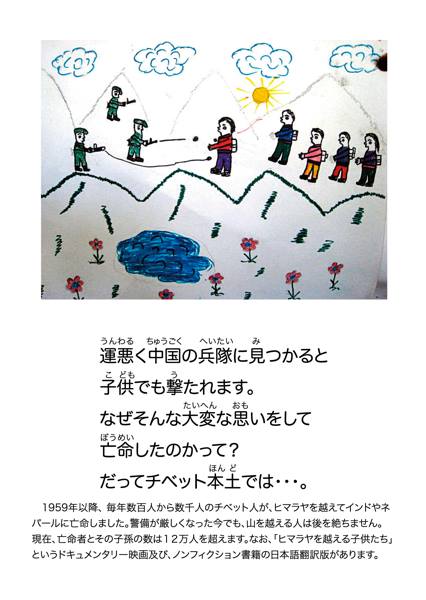 運悪く中国の兵隊に見つかると
子供でも撃たれます。
なぜそんな大変な思いをして
亡命したのかって？
だってチベット本土では・・・。
1959年以降、毎年数百人から数千人のチベット人が、ヒマラヤを越えてインドやネ
パールに亡命しました。警備が厳しくなった今でも、山を越える人は後を絶ちません。
現在、亡命者とその子孫の数は12万人を超えます。なお、「ヒマラヤを越える子供たち」
というドキュメンタリー映画及び、ノンフィクション書籍の日本語翻訳版があります。